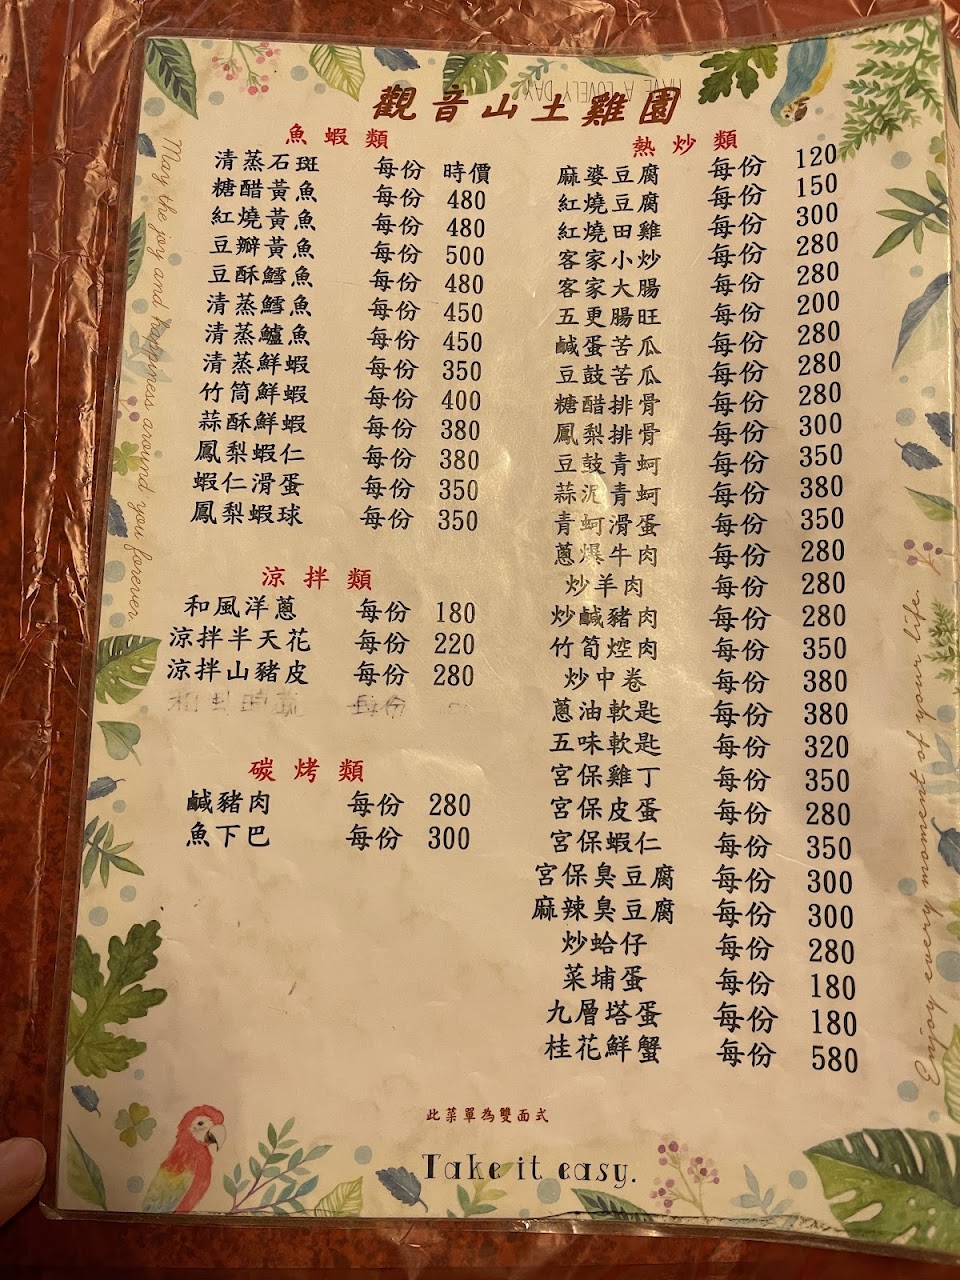 HAVE A LOVELY DAY
觀音山土雞園
魚蝦類
清蒸石斑 每份 時價
糖醋黃魚 每份 480
紅燒黃魚 每份 480
豆瓣黃魚 每份 500
豆酥鱈魚 每份 480
清蒸鱈魚 每份 450
清蒸鱸魚 每份 450
清蒸鮮蝦 每份 350
竹筒鮮蝦 每份 400
蒜酥鮮蝦 每份 380
鳳梨蝦仁 每份 380
蝦仁滑蛋 每份 350
鳳梨蝦球 每份 350
涼拌類
和風洋蔥 每份 180
涼拌半天花 每份 220
涼拌山豬皮 每份 280
碳烤類
鹹豬肉 每份 280
魚下巴 每份 300
熱炒類
麻婆豆腐 每份 120
紅燒豆腐 每份 150
紅燒田雞 每份 300
客家小炒 每份 280
客家大腸 每份 280
五更腸旺 每份 200
鹹蛋苦瓜 每份 280
豆鼓苦瓜 每份 280
糖醋排骨 每份 280
鳳梨排骨 每份 300
豆鼓青蚵 每份 350
蒜泥青蚵 每份 380
青蚵滑蛋 每份 350
蔥爆牛肉 每份 280
炒羊肉 每份 280
炒鹹豬肉 每份 280
竹筍焢肉 每份 350
炒中卷 每份 380
蔥油軟匙 每份 380
五味軟匙 每份 320
宮保雞丁 每份 350
宮保皮蛋 每份 280
宮保蝦仁 每份 350
宮保臭豆腐 每份 300
麻辣臭豆腐 每份 300
炒蛤仔 每份 280
菜埔蛋 每份 180
九層塔蛋 每份 180
桂花鮮蟹 每份 580
此菜單為雙面式
Take it easy.
May the joy and happiness around you forever.
Enjoy every moment of your life.